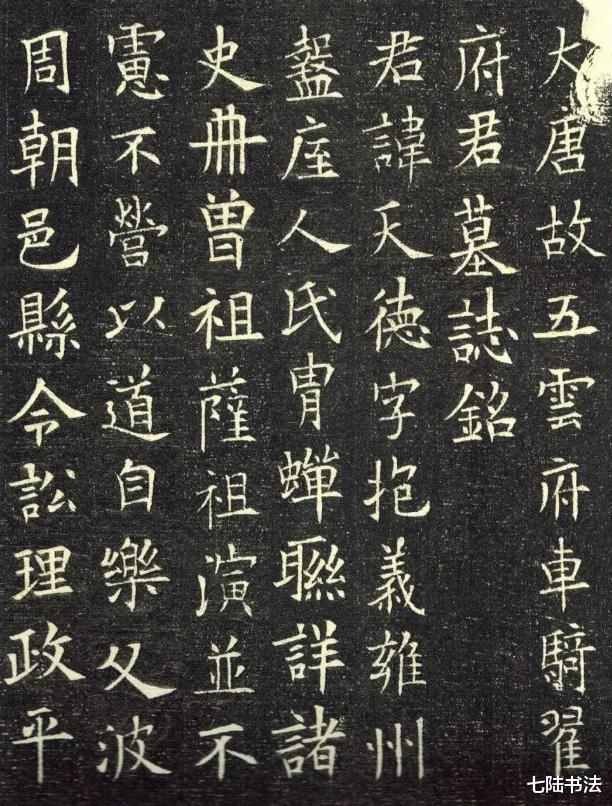 大唐故五雲府車騎翟
府君墓誌銘
君諱天德字抱義雍州
盩庢人氏冑蟬聯詳諸
史冊曾祖薩祖演並不
慮不營以道自樂父波
周朝邑縣令訟理政平
七陆书法